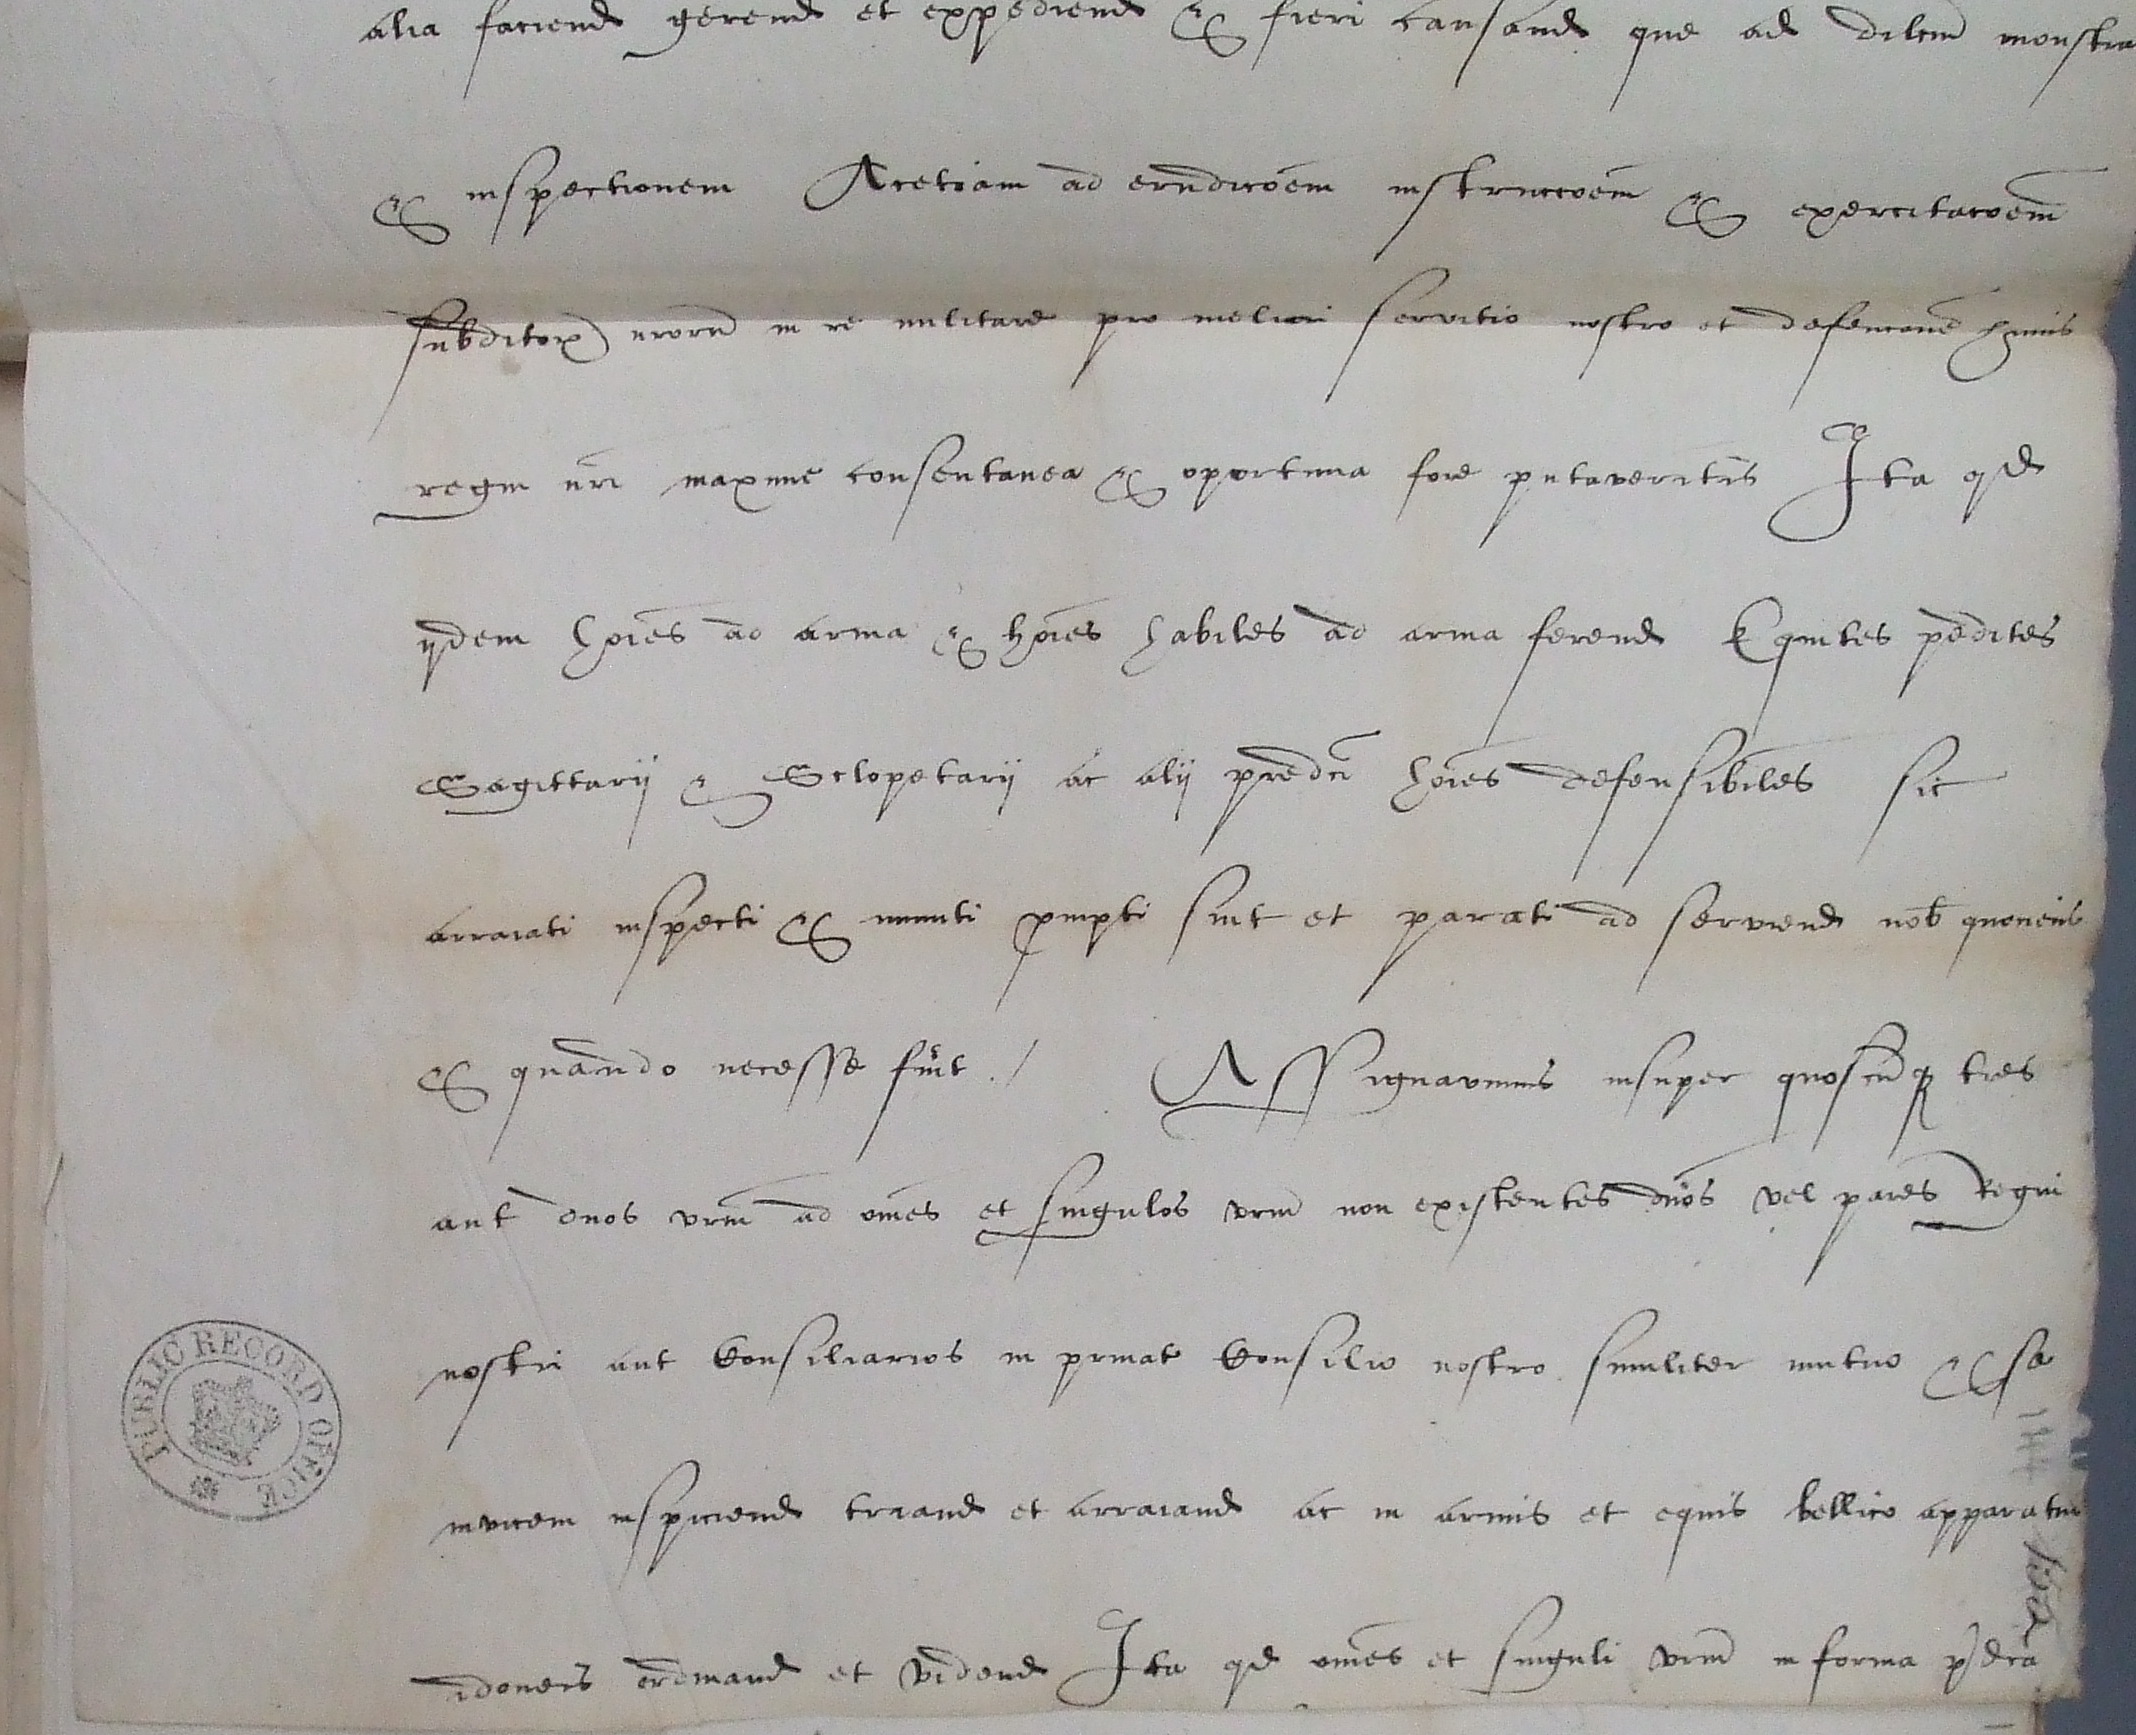 alia faciend gerend et expediend & fieri causand que ad dilcm monstra
& inspectionem Acetiam ad erudicoem instruccoem & exercitacoem
subditor nrorum in re militare pro meliori servitio nostro et defencone hmoi
regni nri maxime consentanea & oportuna fore putaveritis Ita qd
ijdem hoies ad arma & hoies habiles ad arma ferend Equites pedites
Sagittarij & Sclopetarij ac alij predci hoies defensibiles sic
arraiati inspecti & muniti prompti sint et parati ad serviend nob
& quando necesse fuit ./ Assignavimus insuper quoscumq tres
aut duos vrm ad omes et singulos vrm non existentes dnos vel pares Regni
nostri aut Consiliarios in privat Consilio nostro similiter mutuo & se
invicem inspiciend triand et arraiand ac in armis et equis bellico apparatui
idoneis ordinand et vidend Ita qd omes et singuli vrm in forma pdca
PUBLIC RECORD OFFICE